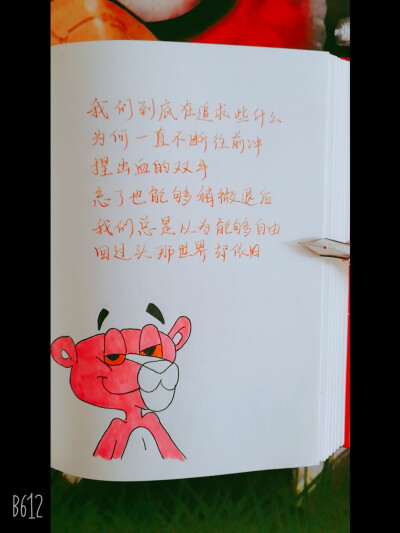 我们到底在追求些什么
为何一直不断往前冲
捏出血的双手
忘了也能够稍微退后
我们总是以为能够自由
回过头那世界却依旧
B612